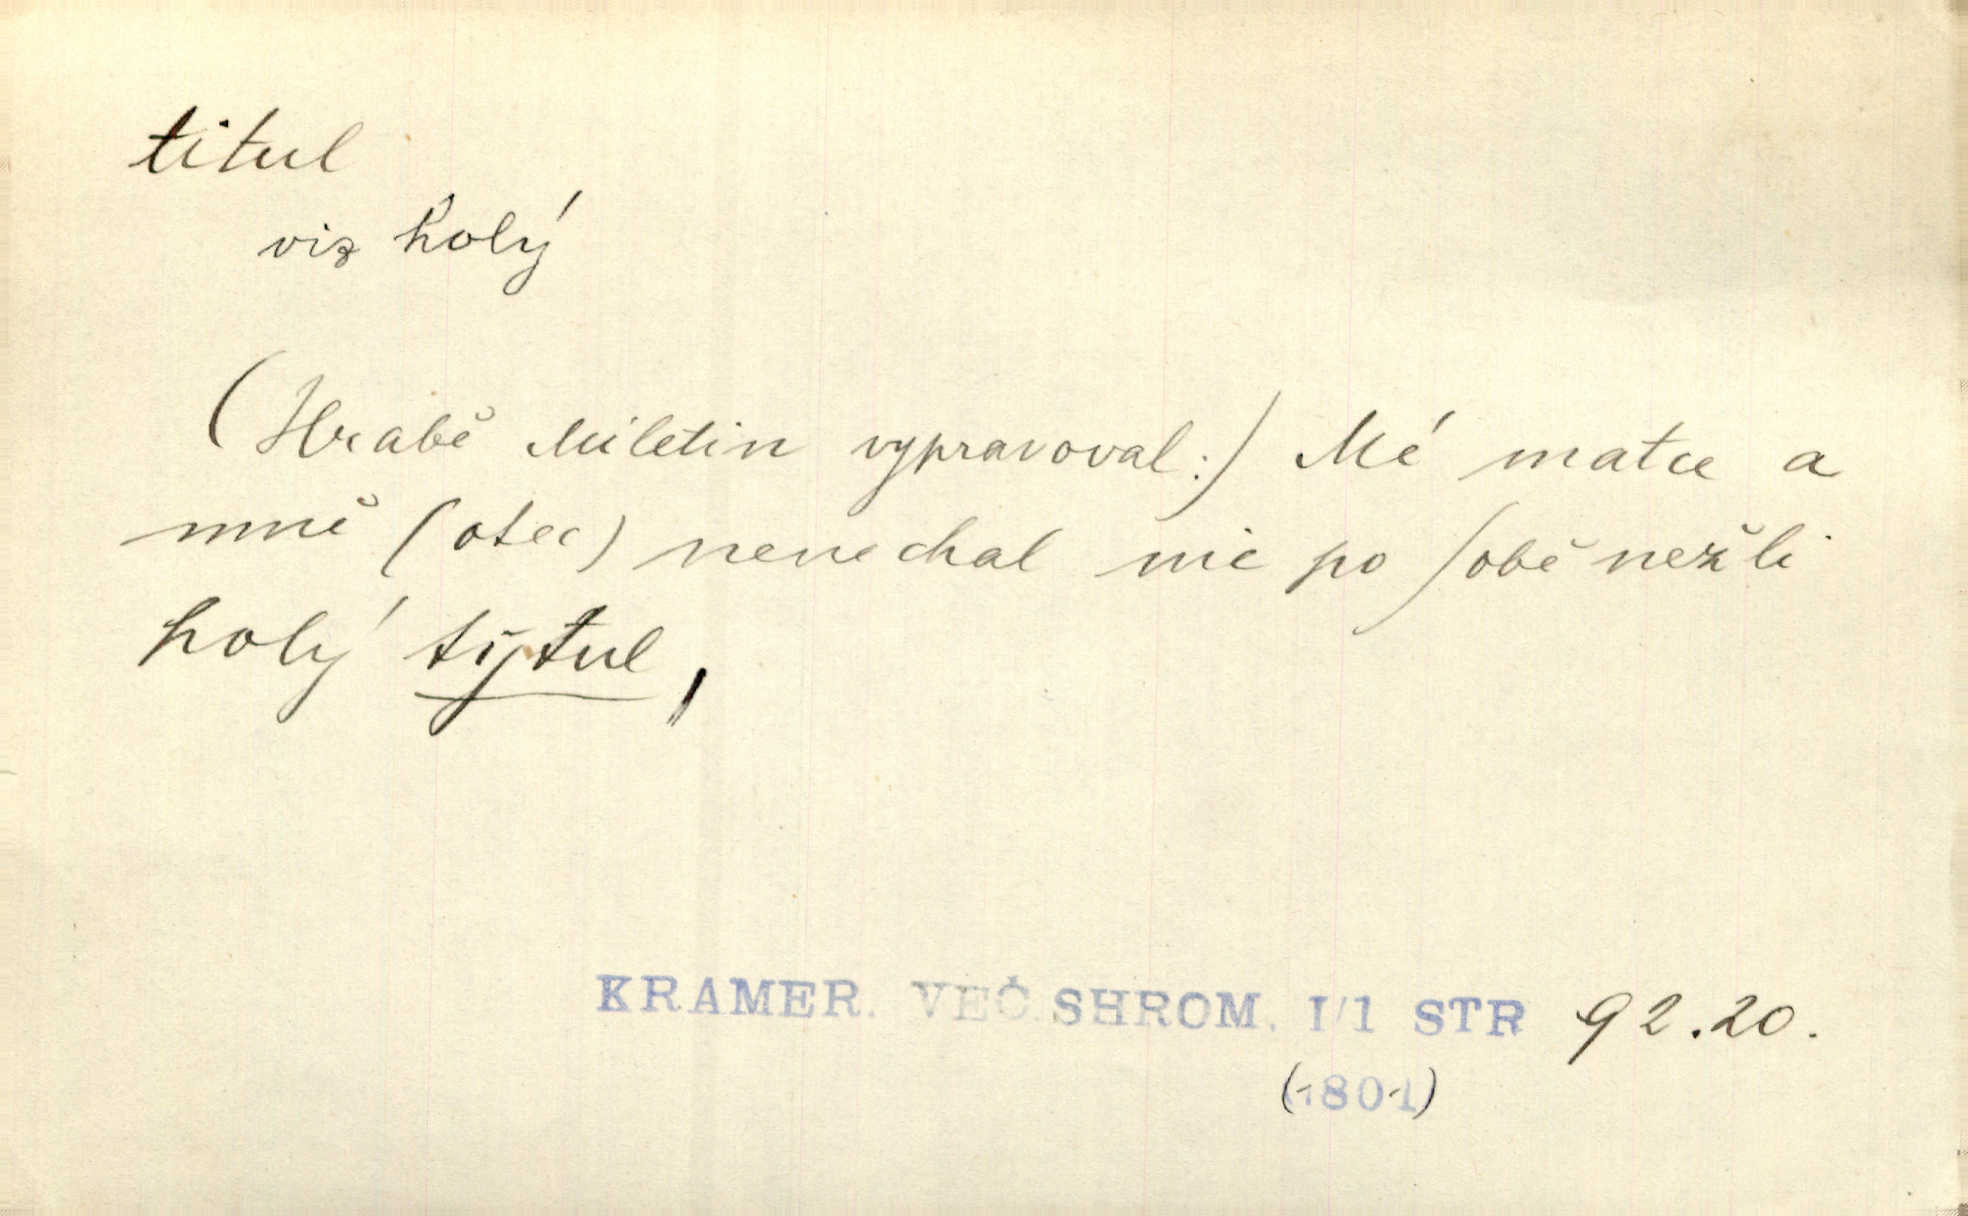 titul
viz holý
(Hrabě Miletin vypravoval:) Mé matce a
mně (otec) nenechal nic po sobě nežli
holý tytul,
KRAMER. VEČ. SHROM. I/1 STR 92.20.
(1801)